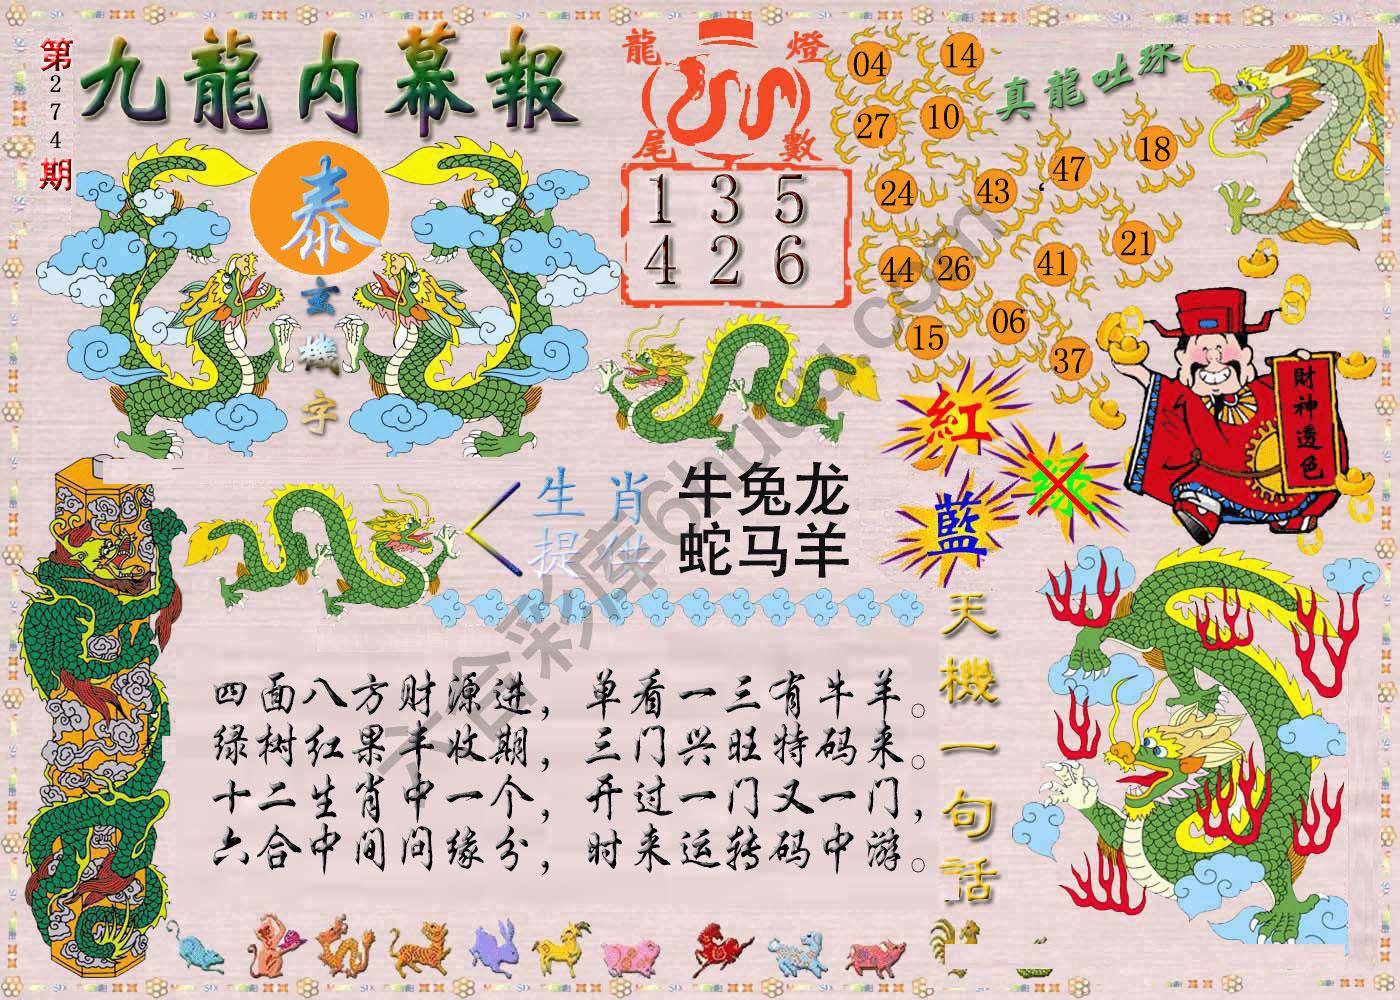 第274期
九龍内幕報
泰
玄機字
龍燈
尾數
1 3 5
4 2 6
真龍吐珠
04 14
27 10
24 43 47 18
44 26 41 21
15 06 37
財神透色
紅
綠
藍
生肖
提供
牛兔龙
蛇马羊
四面八方财源进，单看一三有牛羊。
绿树红果丰收期，三门兴旺特码来。
十二生肖中一个，开过一门又一门，
六合中间问缘分，时来运转码中游。
天機一句話
六合彩库6huuu.com